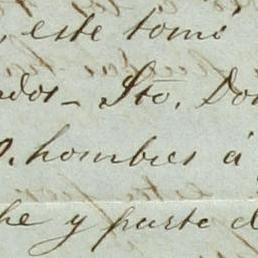 , este tomó
ados_ Sto. Do
0. hombres á
he y parte d